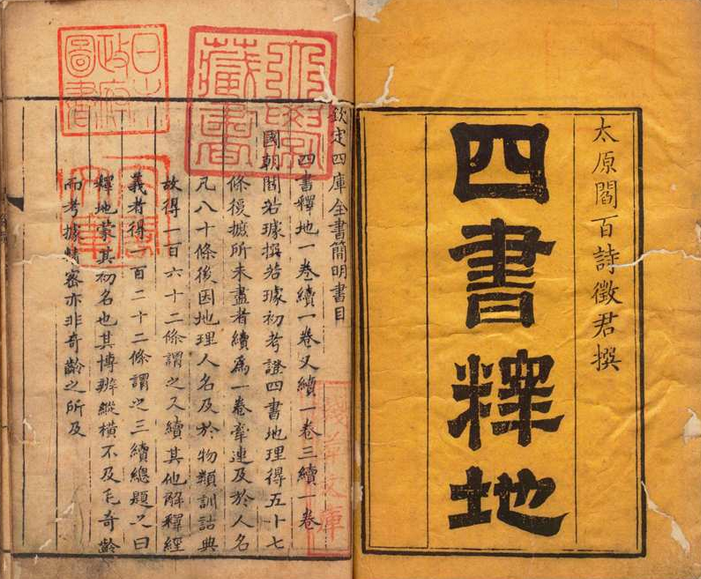 太原閻百詩徵君撰
四書釋地
欽定四庫全書簡明書目
四書釋地一卷續一卷又續一卷三續一卷
國朝閻若璩撰若璩初考證四書地理得五十七
條復摭所未盡者續為一卷牽連及於人名
凡八十條後因地理人名及於物類訓詁典
故得一百六十二條謂之又續其他解釋經
義者得一百二十二條謂之三續總題之曰
釋地蒙其初名也其博辨縱橫不及毛奇齡
而考據精密亦非奇齡之所及
日本
政府
圖書
藏書
淺草文庫